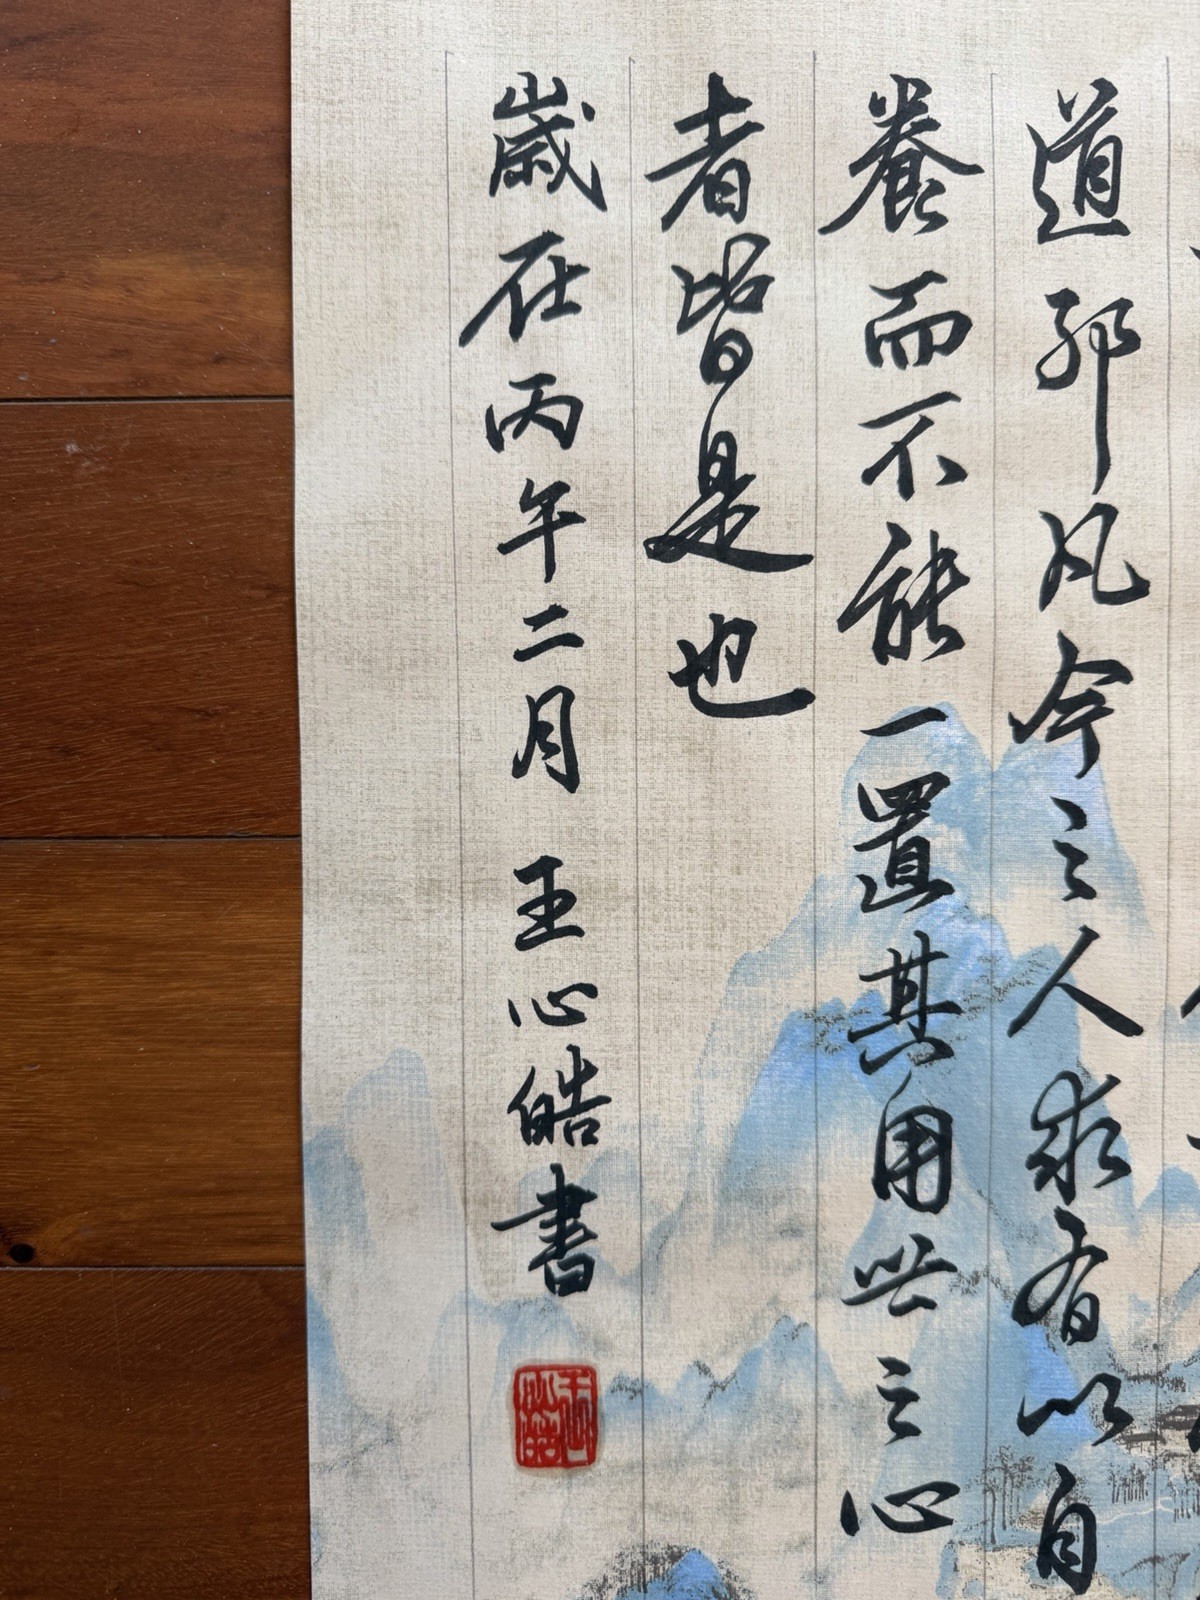 道耶凡今之人求有以自
養而不能一置其用世之心
者皆是也
歲在丙午二月 王心皓書